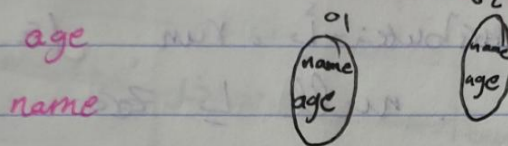 o1
age
name
name
age
name
age